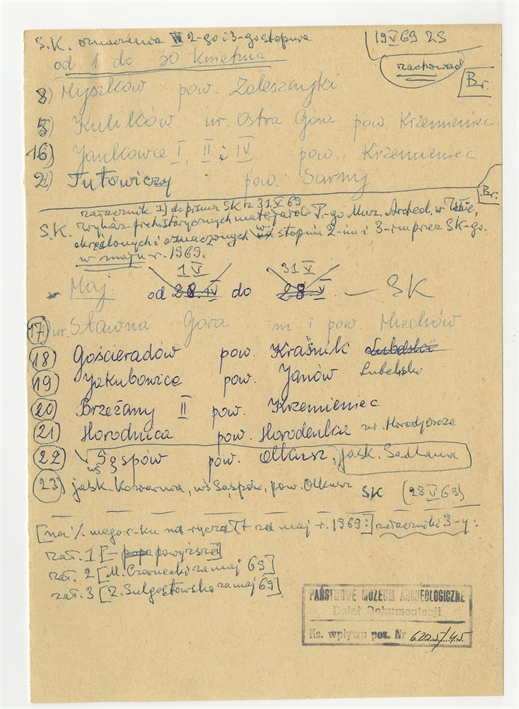 S.K. oznaczenia 2-go i 3-go stopnia
19 V 69 ZS
od 1 do 30 kwietnia
zachować
Br.
8) Myszków pow. Zaleszczyki
5) Kulików ur. Ostra Góra pow. Krzemieniec
16) Jankowce I, II i IV pow. Krzemieniec
2) Tutowiczy pow. Sarny
Br.
załącznik 1) do pisma SK z 31 V 69.
S.K. Wykaz prehistorycznych mater. P-go Muz. Archeol. w
określonych i oznaczonych stopnia 2-im i 3-im przez SK-go.
w maju r. 1969.
1 V 31 V
Maj. od 28 IV do 28 V — SK
17) ur. Sławna Góra m i pow. Miechów
18) Gościeradów pow. Kraśnik Lubelski
19) Jakubowice pow. Janów Lubelski
20) Brzeżany II pow. Krzemieniec
21) Horodnica pow. Horodenka ur. Horodyszcze
22) wś Sąspów pow. Olkusz, jask. Sadlana
23) jask. Koziarnia, wś Sąspów, pow. Olkusz SK (23 V 69)
[na % mego r-ku na ryczałt za maj r. 1969:] załączniki 3-y:
zał. 1 [— powyższe]
zał. 2 [M. Czarnecki za maj 69]
zał. 3 [Z. Sulgostowska za maj 69]
PAŃSTWOWE MUZEUM ARCHEOLOGICZNE
Dział Dokumentacji
Ks. wpływu poz. Nr